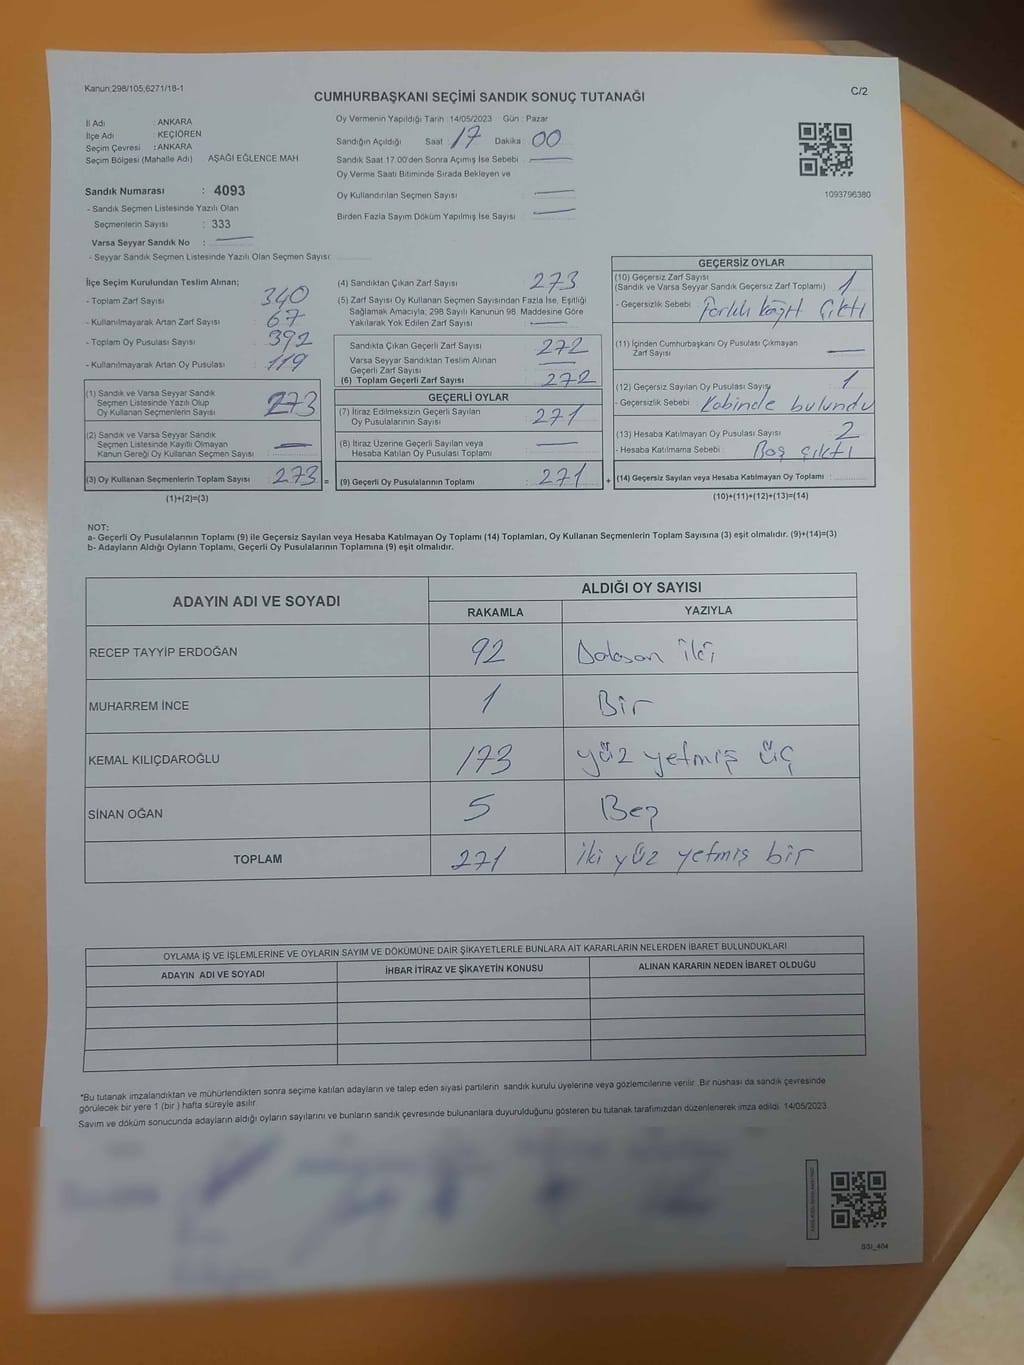 Kanun;298/105,6271/18-1
CUMHURBAŞKANI SEÇİMİ SANDIK SONUÇ TUTANAĞI
C/2
İl Adı : ANKARA
İlçe Adı : KEÇİÖREN
Seçim Çevresi : ANKARA
Seçim Bölgesi (Mahalle Adı) AŞAĞI EĞLENCE MAH
Sandık Numarası : 4093
- Sandık Seçmen Listesinde Yazılı Olan
Seçmenlerin Sayısı : 333
Varsa Seyyar Sandık No :
- Seyyar Sandık Seçmen Listesinde Yazılı Olan Seçmen Sayısı:
Oy Vermenin Yapıldığı Tarih : 14/05/2023 Gün : Pazar
Sandığın Açıldığı Saat 17 Dakika 00
Sandık Saat 17.00'den Sonra Açımış İse Sebebi
Oy Verme Saati Bitiminde Sırada Bekleyen ve
Oy Kullandırılan Seçmen Sayısı
Birden Fazla Sayım Döküm Yapılmış İse Sayısı
1093796380
İlçe Seçim Kurulundan Teslim Alınan;
- Toplam Zarf Sayısı : 340
- Kullanılmayarak Artan Zarf Sayısı : 67
- Toplam Oy Pusulası Sayısı : 392
- Kullanılmayarak Artan Oy Pusulası : 119
(1) Sandık ve Varsa Seyyar Sandık
Seçmen Listesinde Yazılı Olup
Oy Kullanan Seçmenlerin Sayısı 273
(2) Sandık ve Varsa Seyyar Sandık
Seçmen Listesinde Kayıtlı Olmayan
Kanun Gereği Oy Kullanan Seçmen Sayısı :
(3) Oy Kullanan Seçmenlerin Toplam Sayısı 273 =
(1)+(2)=(3)
(4) Sandıktan Çıkan Zarf Sayısı : 273
(5) Zarf Sayısı Oy Kullanan Seçmen Sayısından Fazla İse, Eşitliği
Sağlamak Amacıyla; 298 Sayılı Kanunun 98. Maddesine Göre
Yakılarak Yok Edilen Zarf Sayısı
Sandıkta Çıkan Geçerli Zarf Sayısı : 272
Varsa Seyyar Sandıktan Teslim Alınan
Geçerli Zarf Sayısı
(6) Toplam Geçerli Zarf Sayısı 272
GEÇERLİ OYLAR
(7) İtiraz Edilmeksizin Geçerli Sayılan
Oy Pusulalarının Sayısı : 271
(8) İtiraz Üzerine Geçerli Sayılan veya
Hesaba Katılan Oy Pusulası Toplamı
(9) Geçerli Oy Pusulalarının Toplamı : 271 +
GEÇERSİZ OYLAR
(10) Geçersiz Zarf Sayısı
(Sandık ve Varsa Seyyar Sandık Geçersiz Zarf Toplamı) : 1
- Geçersizlik Sebebi : Farklı kağıt çıktı
(11) İçinden Cumhurbaşkanı Oy Pusulası Çıkmayan
Zarf Sayısı
(12) Geçersiz Sayılan Oy Pusulası Sayısı 1
- Geçersizlik Sebebi : Kabinde bulundu
(13) Hesaba Katılmayan Oy Pusulası Sayısı : 2
- Hesaba Katılmama Sebebi : Boş çıktı
(14) Geçersiz Sayılan veya Hesaba Katılmayan Oy Toplamı :
(10)+(11)+(12)+(13)=(14)
NOT:
a- Geçerli Oy Pusulalarının Toplamı (9) ile Geçersiz Sayılan veya Hesaba Katılmayan Oy Toplamı (14) Toplamları, Oy Kullanan Seçmenlerin Toplam Sayısına (3) eşit olmalıdır. (9)+(14)=(3)
b- Adayların Aldığı Oyların Toplamı, Geçerli Oy Pusulalarının Toplamına (9) eşit olmalıdır.
ADAYIN ADI VE SOYADI ALDIĞI OY SAYISI
RAKAMLA YAZIYLA
RECEP TAYYİP ERDOĞAN 92 Doksan iki
MUHARREM İNCE 1 Bir
KEMAL KILIÇDAROĞLU 173 yüz yetmiş üç
SİNAN OĞAN 5 Beş
TOPLAM 271 iki yüz yetmiş bir
OYLAMA İŞ VE İŞLEMLERİNE VE OYLARIN SAYIM VE DÖKÜMÜNE DAİR ŞİKAYETLERLE BUNLARA AİT KARARLARIN NELERDEN İBARET BULUNDUKLARI
ADAYIN ADI VE SOYADI İHBAR İTİRAZ VE ŞİKAYETİN KONUSU ALINAN KARARIN NEDEN İBARET OLDUĞU
*Bu tutanak imzalandıktan ve mühürlendikten sonra seçime katılan adayların ve talep eden siyasi partilerin sandık kurulu üyelerine veya gözlemcilerine verilir. Bir nüshası da sandık çevresinde
görülecek bir yere 1 (bir) hafta süreyle asılır.
Sayım ve döküm sonucunda adayların aldığı oyların sayılarını ve bunların sandık çevresinde bulunanlara duyurulduğunu gösteren bu tutanak tarafımızdan düzenlenerek imza edildi. 14/05/2023